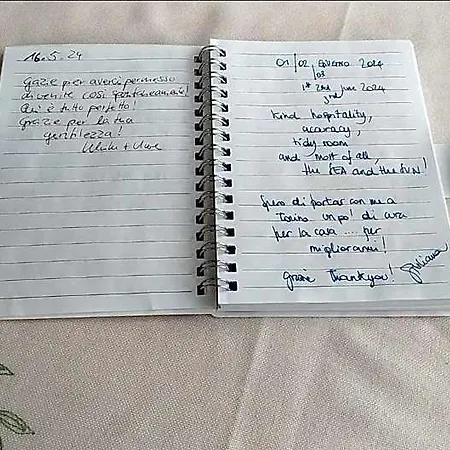 16.5.24
Grazie per averci permesso
di venire così spontaneamente!
Qui è tutto perfetto!
Grazie per la tua
gentilezza!
+ Uwe
01/02 giugno 2024
/03
1st 2nd june 2024
3rd
kind hospitality,
accuracy,
tidy room
and most of all,
the SEA and the SUN!
spero di portar con me a
Torino un po' di cura
per la casa .... per
migliorarmi!
Grazie Thank you!